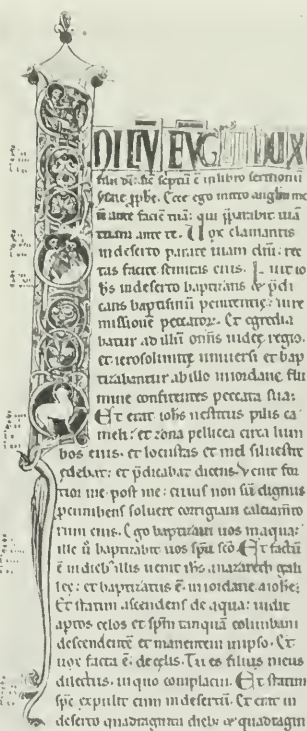 filii dī: sic scptū ē in libro sermonū
ysaie ꝓphe. Ecce ego mitto anglm me
ū ante faciē tuā: qui p̄parabit uiā
tuam ante te. Uox clamantis
in deserto parate uiam dnī: rec
tas facite semitas eius. Fuit io
hs in deserto baptizans & p̄di
cans baptismū penitentie: in re
missionē peccatoꝝ. Et egredie
batur ad illū om̄is iudee regio.
et ierosolimite uniuersi et bap
tizabantur ab illo in iordane flu
mine confitentes peccata sua:
Et erat iohs uestitus pilis ca
meli: et zona pellicea circa lum
bos eius. et locustas et mel siluestre
edebat: et p̄dicabat dicens. Venit for
tior me post me: cuius non sū dignus
procumbens soluere corrigiam calciamto
rum eius. Ego baptizaui uos in aqua:
ille ū baptizabit uos spū sc̄o. Et factū
ē in dieb' illis uenit ihs. a nazareth gali
lee: et baptizatus ē. in iordane a iohe:
Et statim ascendens de aqua: uidit
aptos celos et spm tanquā columbam
descendentē et manentem in ipso. Et
uox facta ē: de celis. Tu es filius meus
dilectus. in quo complacui. Et statim
spc expulit eum in desertū. Et erat in
deserto quadraginta dieb; & quadragin